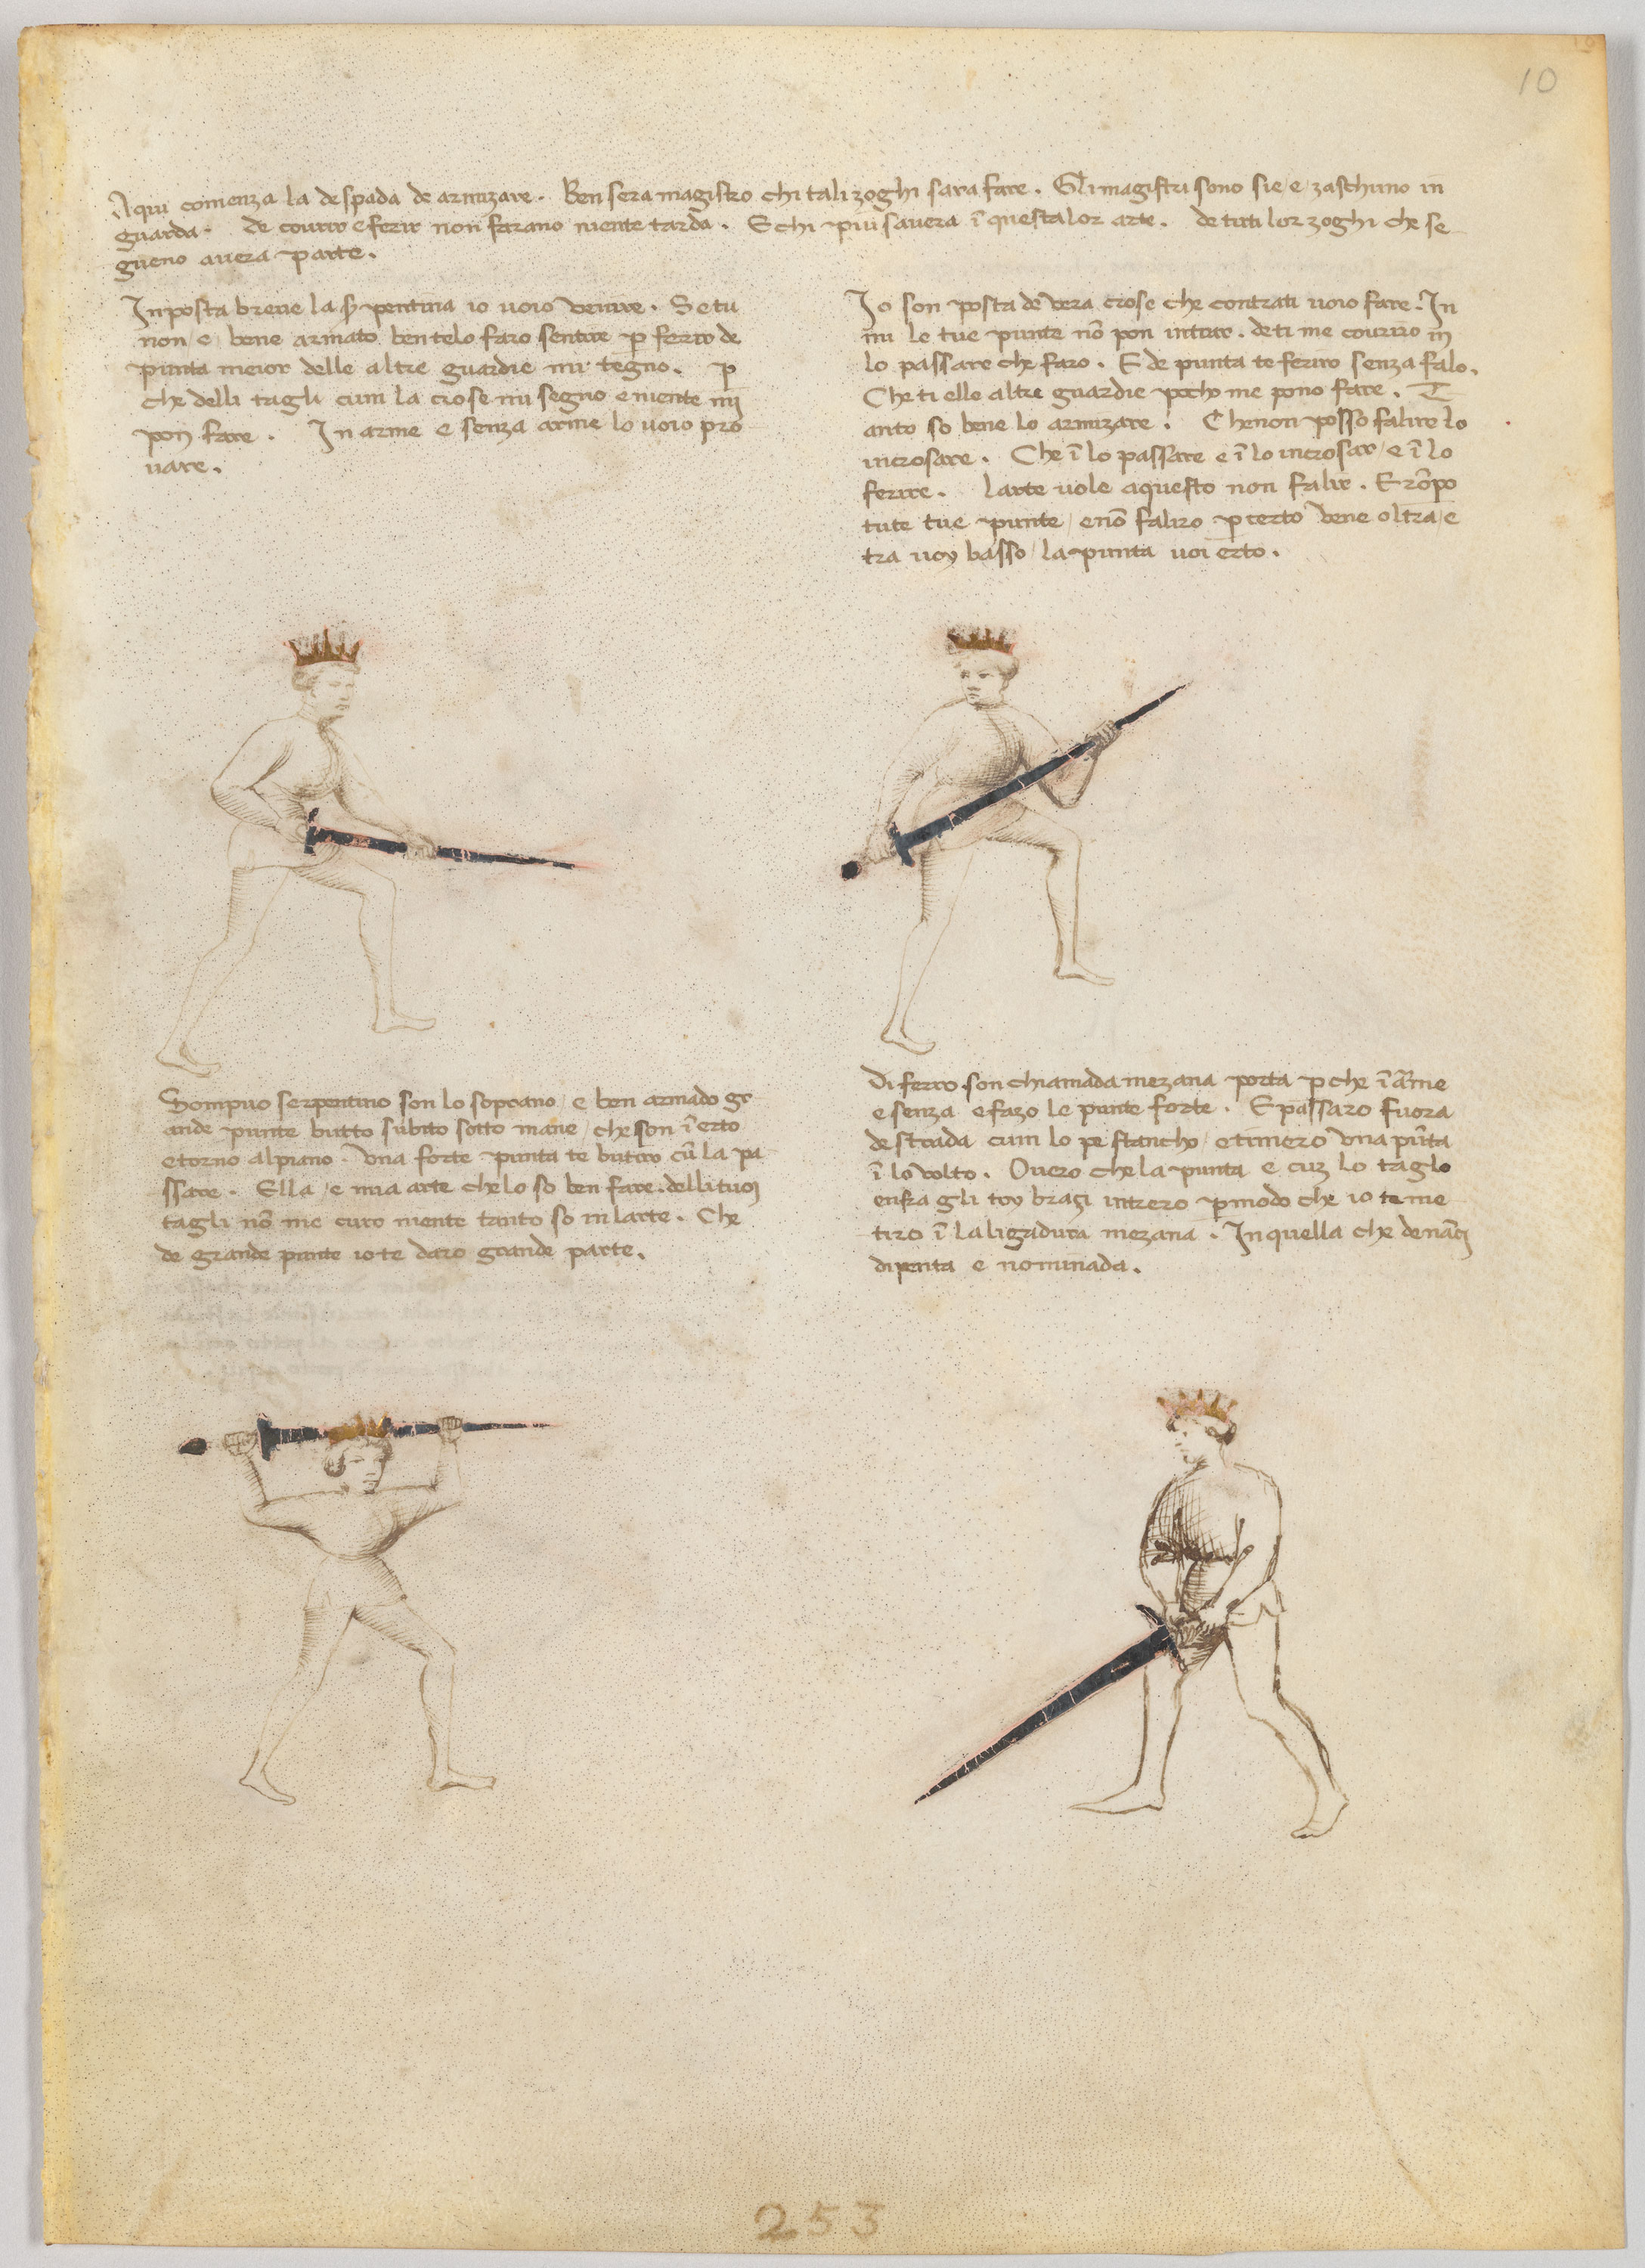 10
Aqui comenza la de spada de armizare. Ben sera magistro chi tali zoghi sara fare. Gli magistri sono sie / e / zaschuno in
guarda. de covrir e ferir non farano niente tarda. E chi più savera ī questa lor arte. de tuti lor zoghi che se
gueno avera parte.
In posta breve la sꝑpentina io voio venire. Se tu
non / e / bene armato ben telo faro sentire ꝑ ferir de
punta meior delle altre guardie mi tegno. ꝑ
che delli tagli cum la crose mi segno e niente mi
pon fare. In arme e senza arme lo voio pro
vare.
Io son posta de vera crose che contra ti voio fare. In
mi le tue punte nō pon intrar. de ti me covriro in
lo passare che faro. E de punta te feriro senza falo.
Che ti e lle altre guardie pocho me pono fare. T
anto so bene lo armizare. Che non posso falire lo
incrosare. Che ī lo passare e ī lo incrosar / e ī lo
ferire. larte vole aquesto non falir. E rōpo
tute tue punte / e nō faliro ꝑ certo bene oltra / e
tra voy basso / la punta voi erto.
Sompno serpentino son lo soprano / e ben armado gr
ande punte butto subito sotto mane / che son ī erto
e torno al piano. una forte punta te butiro cū la pa
ssare. Ella / e mia arte che lo so ben fare. delli tuoi
tagli nō me curo niente tanto so in larte. Che
de grande punte io te daro grande parte.
Di ferro son chiamada mezana porta ꝑ che ī arme
e senza e fazo le punte forte. E passaro fuora
de strada cum lo pe stancho / e ti mero una pūta
ī lo volto. Overo che la punta e cuz lo taglo
enfra gli toy brazi intrero ꝑ modo che io te me
tiro ī la ligadura mezana. In quella che denāzi
dipenta e nominada.
253